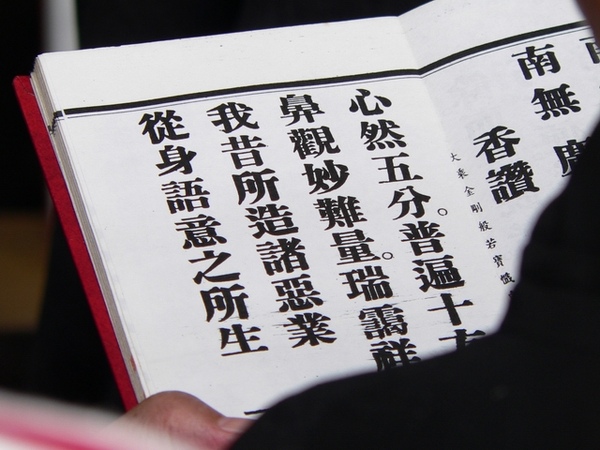 南無
香讚
大乘金剛般若寶懺
心然五分。普遍十方
鼻觀妙難量。瑞靄祥
我昔所造諸惡業
從身語意之所生